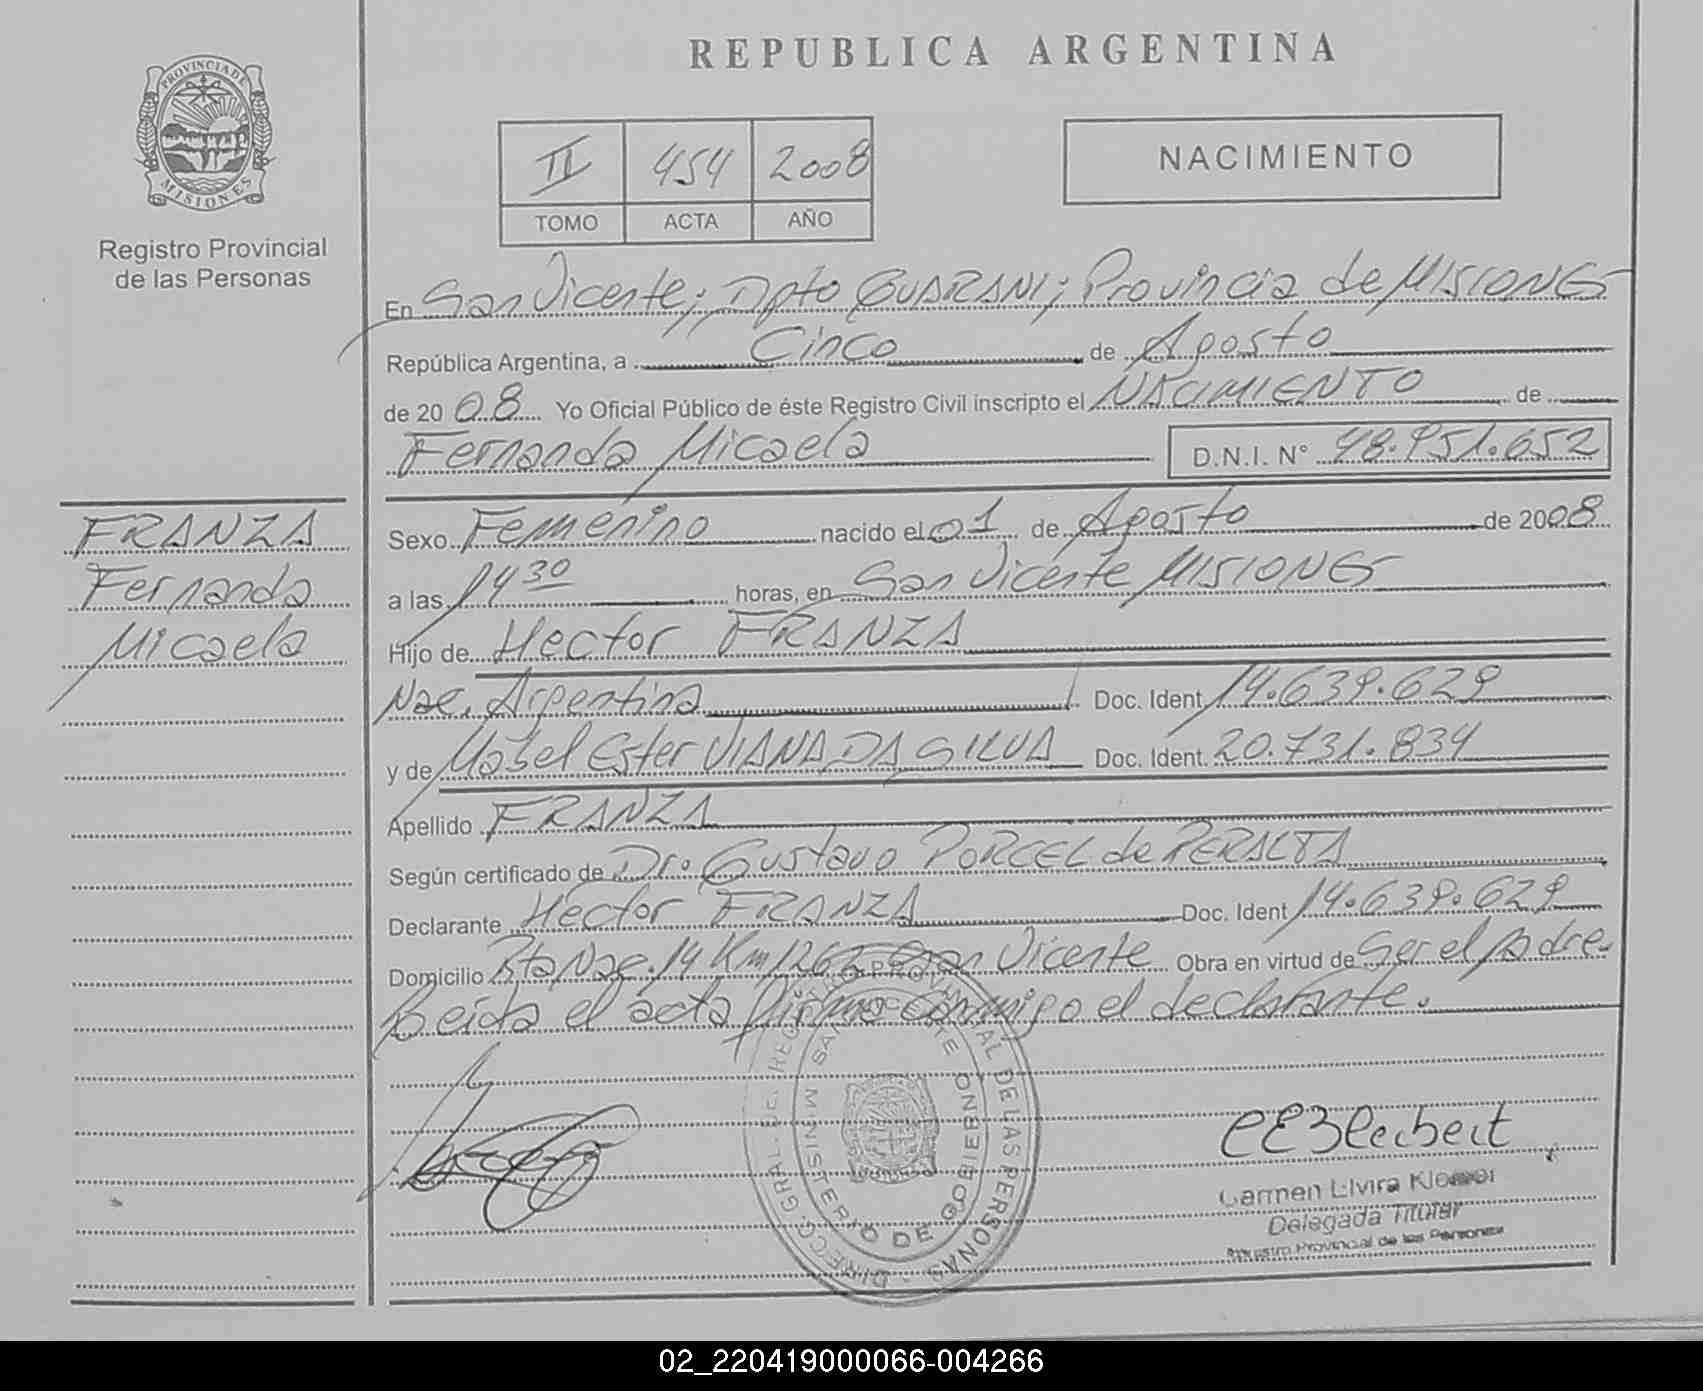 REPUBLICA ARGENTINA
PROVINCIA DE
MISIONES
Registro Provincial
de las Personas
II 454 2008
TOMO ACTA AÑO
NACIMIENTO
En San Vicente; Dpto GUARANI; Provincia de MISIONES
República Argentina, a Cinco de Agosto
de 2008 Yo Oficial Público de éste Registro Civil inscripto el NACIMIENTO de
Fernanda Micaela D.N.I. N° 48.951.652
FRANZA
Fernanda
Micaela
Sexo Femenino nacido el 01 de Agosto de 2008
a las 14 30 horas, en San Vicente MISIONES
Hijo de Hector FRANZA
Nac. Argentina Doc. Ident 14.639.629
y de Mabel Ester VIANA DA SILVA Doc. Ident. 20.731.834
Apellido FRANZA
Según certificado de Dr. Gustavo PORCEL de PERALTA
Declarante Hector FRANZA Doc. Ident 14.639.629
Domicilio Rta Nac. 14 Km 1262 San Vicente Obra en virtud de Ser el padre.
Leida el acta firma conmigo el declarante.
DIRECC. GRAL. DE REGISTRO PROVINCIAL DE LAS PERSONAS
MINISTERIO DE GOBIERNO
SAN VICENTE
Carmen Elvira
Delegada Titular
Registro Provincial de las Personas
02_220419000066-004266